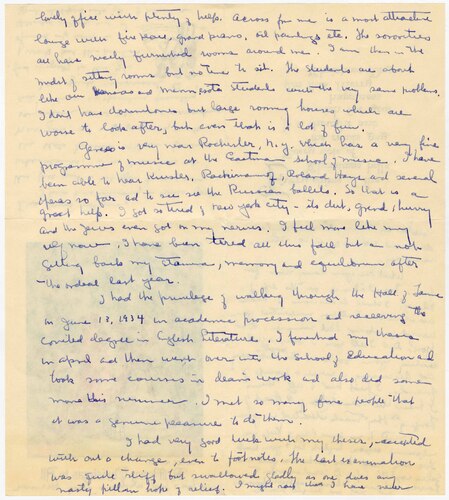 lovely office with plenty of help. Across from me is a most attractive
lounge with fire place, grand piano, oil paintings etc. The sororities
all have newly furnished rooms around me. I am then in the
midst of sitting rooms but no time to sit. The students are about
like our Kansas and students with the very same problems.
I don't have dormitories but large rooming houses which are
worse to look after, but even that is a lot of fun.
Geneseo is very near Rochester, N.Y. which has a very fine
programme of music at the Eastman school of music. I have
been able to hear Kreisler, Rachmaninof, Roland Hayes and several
operas so far ad to see the Russian ballets. So that is a
great help. I got so tired of New York city - its dirt, grind, hurry
and the Jews even got on my nerves. I feel more like my
self now. I have been tired all this fall but am now
getting back my stamina, memory and equilibrium after
the ordeal last year.
I had the privilege of walking through the Hall of Fame
in June 12, 1934 in academic procession ad receiving the
coveted degree in English Literature. I finished my thesis
in april ad then went over into the School of Education ad
took some courses in deans work and also did some
more this summer. I met so many fine people that
it was a genuine pleasure to do them.
I had very good luck with my thesis, - accepted
with out a change, even to foot notes. The last examination
was quite stiff but swallowed gladly as one does any
nasty pill in hope of relief. I might say this I have never